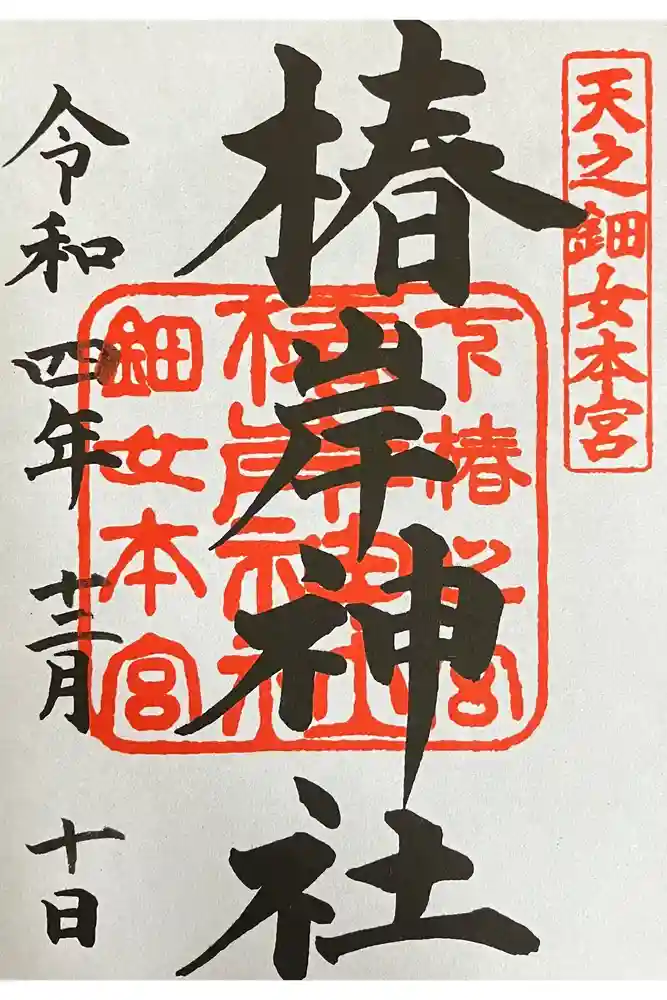 天之鈿女本宮
椿岸神社
椿岸神社
鈿女本宮
令和四年十二月十日